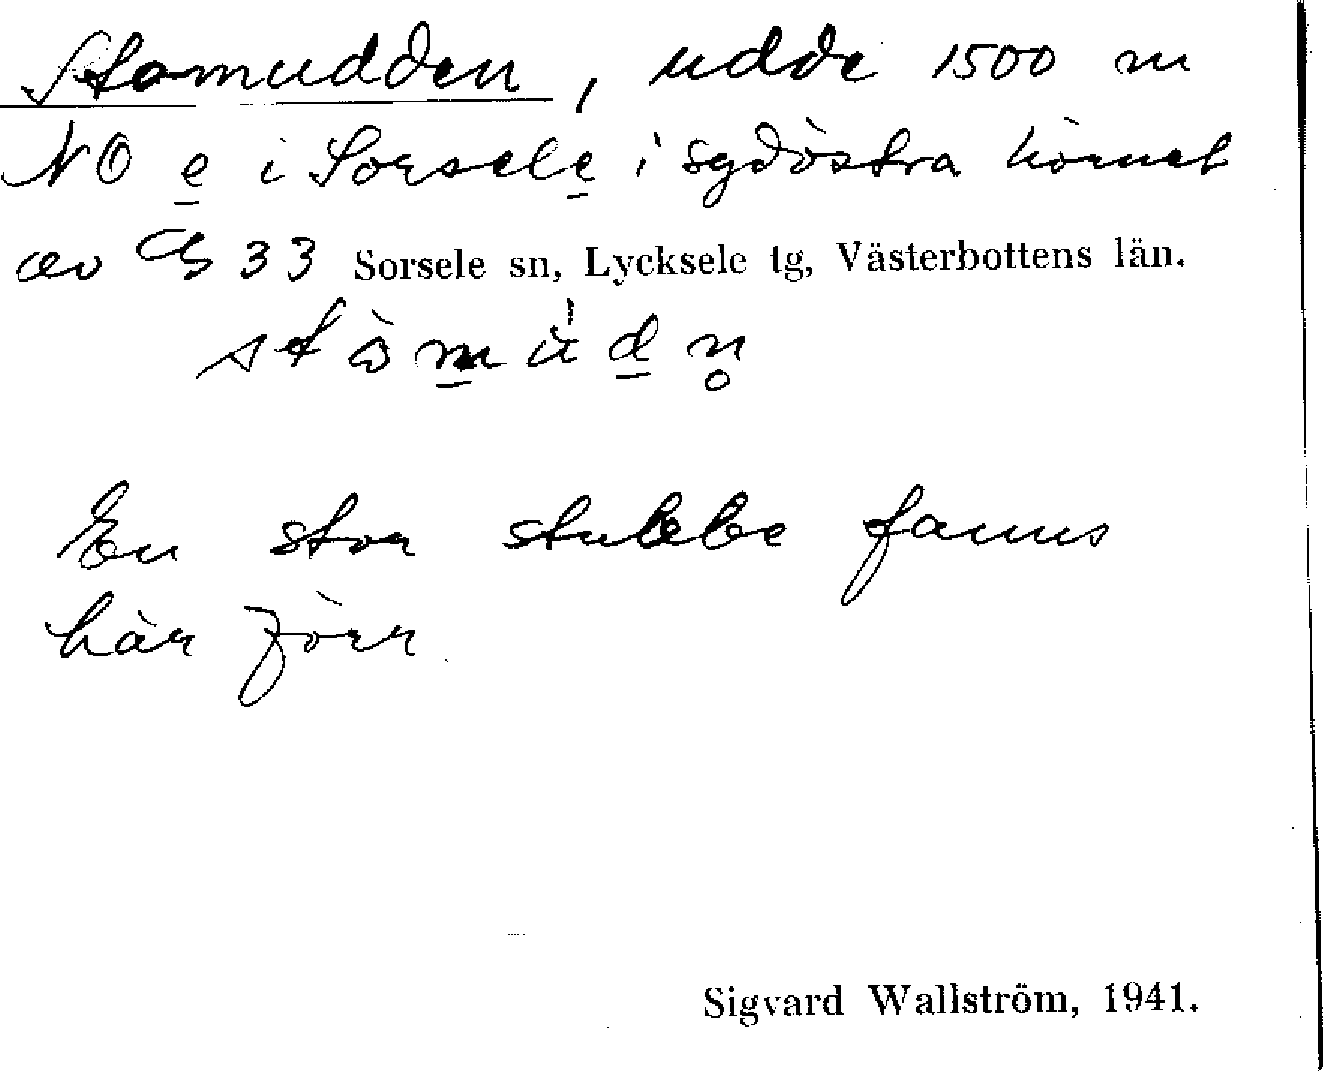 Stomudden, udde 1500 m
NO e i Sorsele i sydöstra hörnet
av 33 Sorsele sn, Lycksele tg, Västerbottens län.
En stor stubbe fanns
här förr
Sigvard Wallström, 1941.